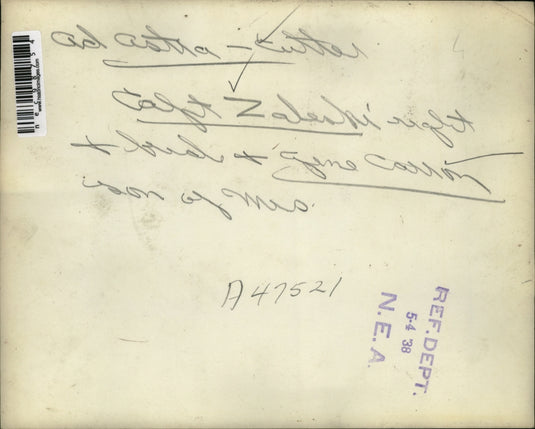 Ad Astra - Cutter
Capt Zaleski right
+ bride + Gene Carson
son of Mrs.
A47521
REF. DEPT.
5-4 38
N.E.A.